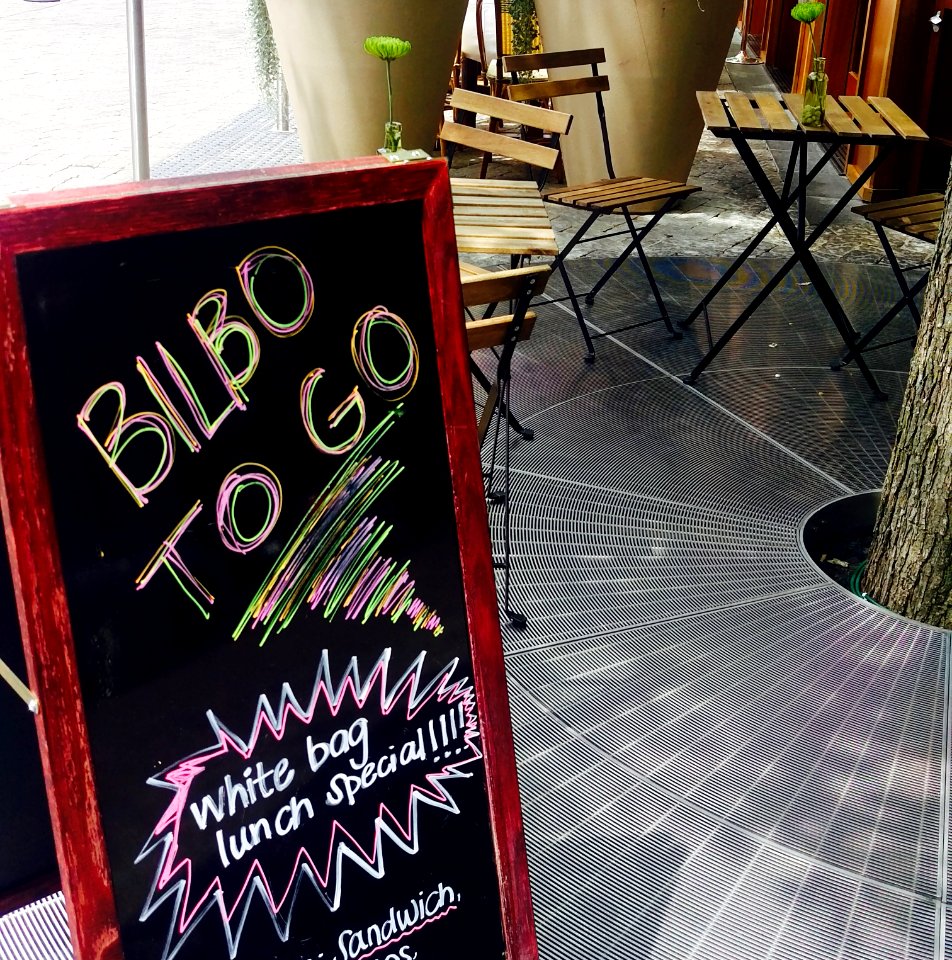 BILBO
TO GO
white bag
lunch special!!!!
Sandwich,